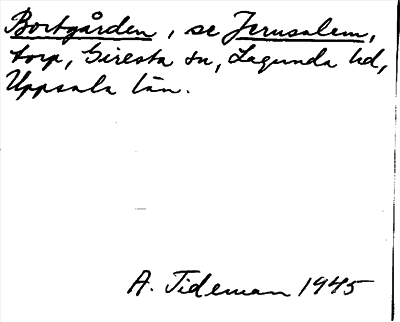 Bortgården, se Jerusalem,
torp, Giresta sn, Lagunda hd,
Uppsala län.
A. Tideman 1945